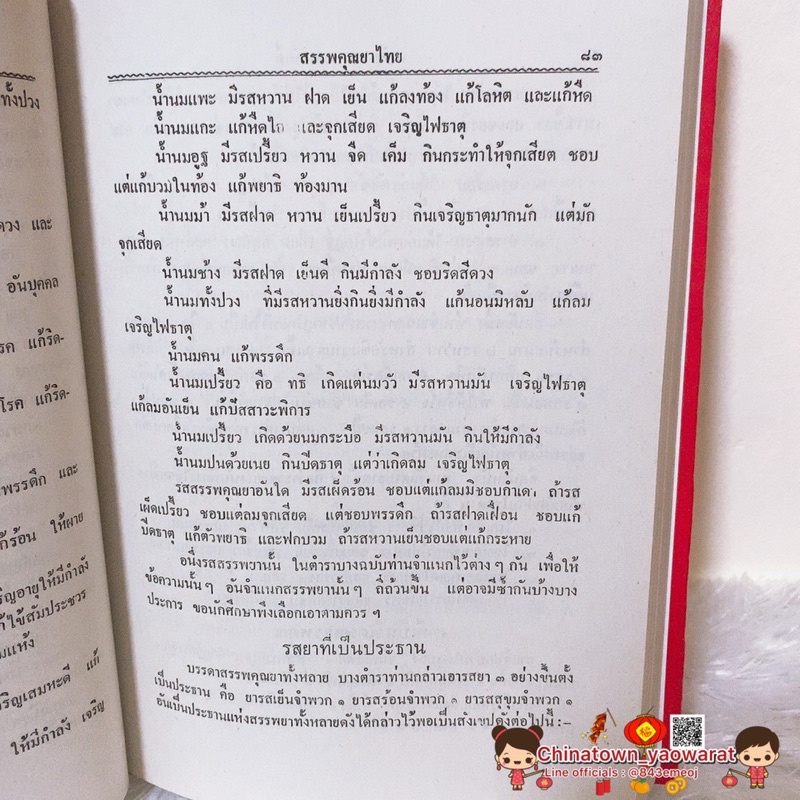 ทั้งปวง
ดวง และ
อันบุคคล
รค แก้ริด-
โรค แก้ริด-
พรรดึก และ
แก้ร้อน ให้ผาย
ริญอายุให้มีกำลัง
แก้ไข้สัมประชวร
มแห้ง
จริญเสมหะดี แก้
ให้มีกำลัง เจริญ
สรรพคุณยาไทย ๘๓
น้ำนมแพะ มีรสหวาน ฝาด เย็น แก้ลงท้อง แก้โลหิต และแก้หืด
น้ำนมแกะ แก้หืดไอ และจุกเสียด เจริญไฟธาตุ
น้ำนมอูฐ มีรสเปรี้ยว หวาน จืด เค็ม กินกระทำให้จุกเสียด ชอบ
แต่แก้บวมในท้อง แก้พยาธิ ท้องมาน
น้ำนมม้า มีรสฝาด หวาน เย็นเปรี้ยว กินเจริญธาตุมากนัก แต่มัก
จุกเสียด
น้ำนมช้าง มีรสฝาด เย็นดี กินมีกำลัง ชอบริดสีดวง
น้ำนมทั้งปวง ที่มีรสหวานยิ่งกินยิ่งมีกำลัง แก้นอนมิหลับ แก้ลม
เจริญไฟธาตุ
น้ำนมคน แก้พรรดึก
น้ำนมเปรี้ยว คือ ทธิ เกิดแต่นมวัว มีรสหวานมัน เจริญไฟธาตุ
แก้ลมอันเย็น แก้ปัสสาวะพิการ
น้ำนมเปรี้ยว เกิดด้วยนมกระบือ มีรสหวานมัน กินให้มีกำลัง
น้ำนมปนด้วยเนย กินปิดธาตุ แต่ว่าเกิดลม เจริญไฟธาตุ
รสสรรพคุณยาอันใด มีรสเผ็ดร้อน ชอบแต่แก้ลมมิชอบกำเดา ถ้ารส
เผ็ดเปรี้ยว ชอบแต่ลมจุกเสียด แต่ชอบพรรดึก ถ้ารสฝาดเฝื่อน ชอบแก้
ปิดธาตุ แก้ตัวพยาธิ และฟกบวม ถ้ารสหวานเย็นชอบแต่แก้กระหาย
อนึ่งรสสรรพยานั้น ในตำราบางฉบับท่านจำแนกไว้ต่าง ๆ กัน เพื่อให้
ข้อความนั้น ๆ อันจำแนกสรรพยานั้น ๆ ถี่ถ้วนขึ้น แต่อาจมีซ้ำกันบ้างบาง
ประการ ขอนักศึกษาพึงเลือกเอาตามควร ฯ
รสยาที่เป็นประธาน
บรรดาสรรพคุณยาทั้งหลาย บางตำราท่านกล่าวเอารสยา ๓ อย่างขึ้นตั้ง
เป็นประธาน คือ ยารสเย็นจำพวก ๑ ยารสร้อนจำพวก ๑ ยารสสุขุมจำพวก ๑
อันเป็นประธานแห่งสรรพยาทั้งหลายดังได้กล่าวไว้พอเป็นสังเขปดังต่อไปนี้ :-
Chinatown_yaowarat
Line officials : @843emeoj